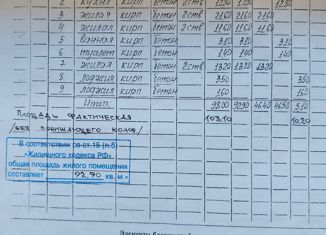 2 кухня кирп бетон 2ств 1280 1280 1280
3 жилая кирп бетон 2ств 2160 2160 2160
4 жилая кирп бетон 2ств 1160 1160 1160
5 ванная кирп бетон 310 310 310
6 туалет кирп бетон 140 140 140
7 жилая кирп бетон 2ств 1320 1320 1320
8 лоджия кирп бетон 350 350
9 лоджия кирп бетон 160 160
Итого 9800 9290 4640 4650 510
Площадь фактическая 103.10 10.20
/без понижающего коэф/
В соответствии со ст.15 (п.5)
«Жилищного кодекса РФ»
общая площадь жилого помещения
составляет 92,90 кв. м.-